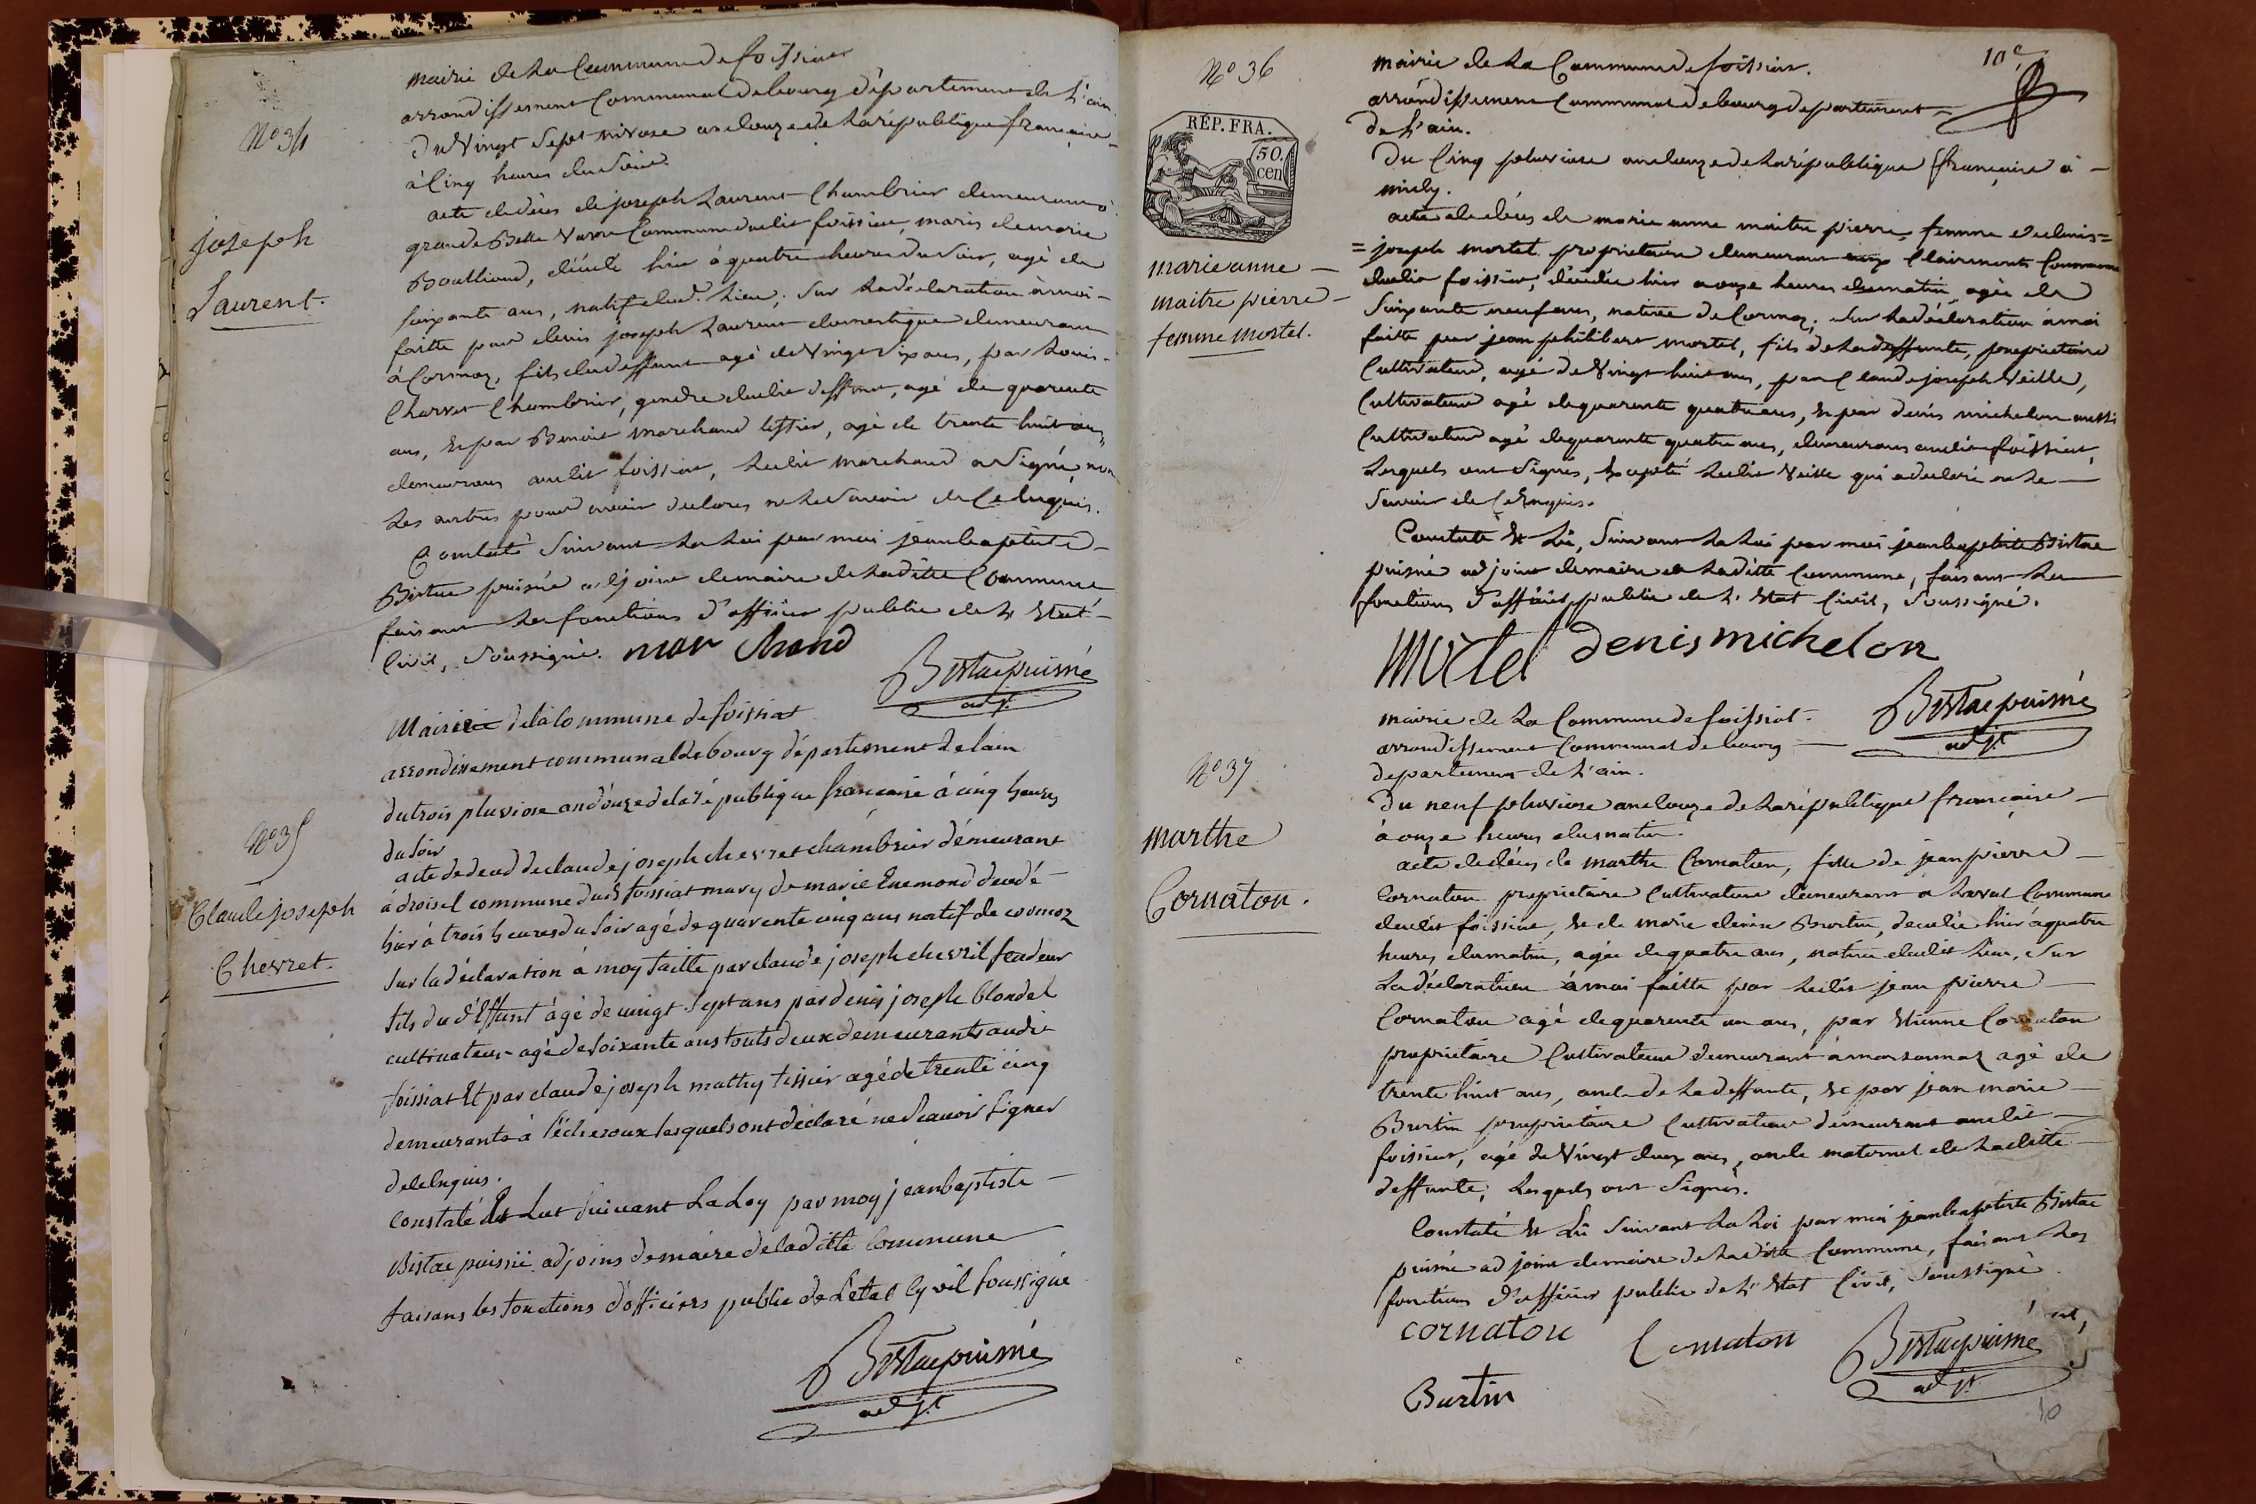 mairie de la Commune de foissiat
arrondissement Communal de bourg département de L'ain
Du Vingt Sept nivose an douze de la république française
à Cinq heures du Soir.
N° 34
acte de décès de joseph Laurent Chambrier demeurant à
grande Commune dudit foissiat, maris de marie
joseph
Laurent.
décédé hier à quatre heures du Soir, agé de
Soixante ans, natif dud. Lieu; Sur la déclaration à moi
faitte par denis joseph Laurent domestique demeurant
à Cormoz, fils du deffunt agé de Vingt Six ans, par Louis
Charvet Chambrier, gendre dudit deffunt, agé de quarente
ans, Et par Benoit marchand tissier, agé de trente huit ans,
demeurans audit foissiat, Ledit marchand a Signé non
Les autres pour avoir declarés ne le Savoir de Ce Enquis.
Constaté Suivant la Loi par moi jean baptiste
Bistac puisné adjoint de maire de Laditte Commune
faisant Les fonctions d'officier public de L'Etat
Civil, Soussigné. mar chand
Bistac puisné
adjt.
Mairie de la commune de foissiat
arrondissement communal de bourg département de lain
du trois pluviose an douze de la république francaise à cinq heures
du soir
N° 35
Claude joseph
Chevret.
acte de deud de claude joseph chevret chambrier démeurant
à droisel commune dud foissiat mary de marie Enemond deudé
hier à trois heures du soir agé de quarente cinq ans natif de cormoz
sur la déclaration à moy faitte par claude joseph chevril feadeur
fils du déffunt âgé de vingt sept ans par denis joseph blondel
cultivateur agé de soixante ans touts deux demeurants audit
foissiat Et par claude joseph mathy tissier agé de trente cinq
demeurants à l'échesoux lesquels ont déclaré ne scavoir signer
de ce enquis.
constaté Et Lut suivant La Loy par moy jean baptiste
Bistac puisné adjoins de maire de laditte commune
faisans les fonctions d'officiers public de L'état cyvil soussigné
Bistac puisné
adjt.
10e
N° 36
REP. FRA.
50.
cen
marie anne
maitre pierre
femme mortel.
mairie de La Commune de foissiat.
arrondissement Communal de bourg departement
de L'ain.
Du Cinq pluviose an douze de la république française à
midy.
acte de décès de marie anne maitre pierre, femme de denis
joseph mortel propriétaire demeurant Clairmont Commune
dudit foissiat, décédée hier a onze heures du matin, agée de
Soixante neuf ans, native de Cormoz; Sur La déclaration à moi
faitte par jean philibert mortel, fils de la deffunte, propriétaire
Cultivateur, agé de Vingt huit ans, par Claude joseph Veille,
Cultivateur agé de quarente quatre ans, Et par denis michelon aussi
Cultivateur agé de quarente quatre ans, demeurans audit foissiat,
Lesquels ont Signés, Excepté Ledit Veille qui a declaré ne le
Savoir de Ce Enquis.
Constaté Et Lû, Suivant La Loi par moi jean baptiste Bistac
puisné adjoint de maire de Laditte Commune, faisant Les
fonctions d'officier public de L'Etat Civil, Soussigné.
Mortel denis michelon
Bistac puisné
adjt.
mairie de La Commune de foissiat.
arrondissement Communal de bourg
departement de L'ain.
N° 37
marthe
Cornaton.
Du neuf pluviose an douze de la république française
à onze heures du matin.
acte de décès de marthe Cornaton, fille de jean pierre
Cornaton propriétaire Cultivateur demeurant a Laval Commune
dudit foissiat, Et de marie denise Burtin, decédée hier à quatre
heures du matin, agée de quatre ans, native dudit Lieu, Sur
La déclaration à moi faitte par Ledit jean pierre
Cornaton agé de quarente un ans, par Etienne Cornaton
propriétaire Cultivateur demeurant à marsonnaz agé de
trente huit ans, oncle de la deffunte, Et par jean marie
Burtin propriétaire Cultivateur demeurant audit
foissiat, agé de Vingt deux ans, oncle maternel de Laditte
deffunte, Lesquels ont Signés.
Constaté Et Lû Suivant La Loi par moi jean baptiste Bistac
puisné adjoint de maire de Laditte Commune, faisant Les
fonctions d'officier public de L'Etat Civil, Soussigné
cornaton Cornaton Bistac puisné
adjt.
Burtin
10